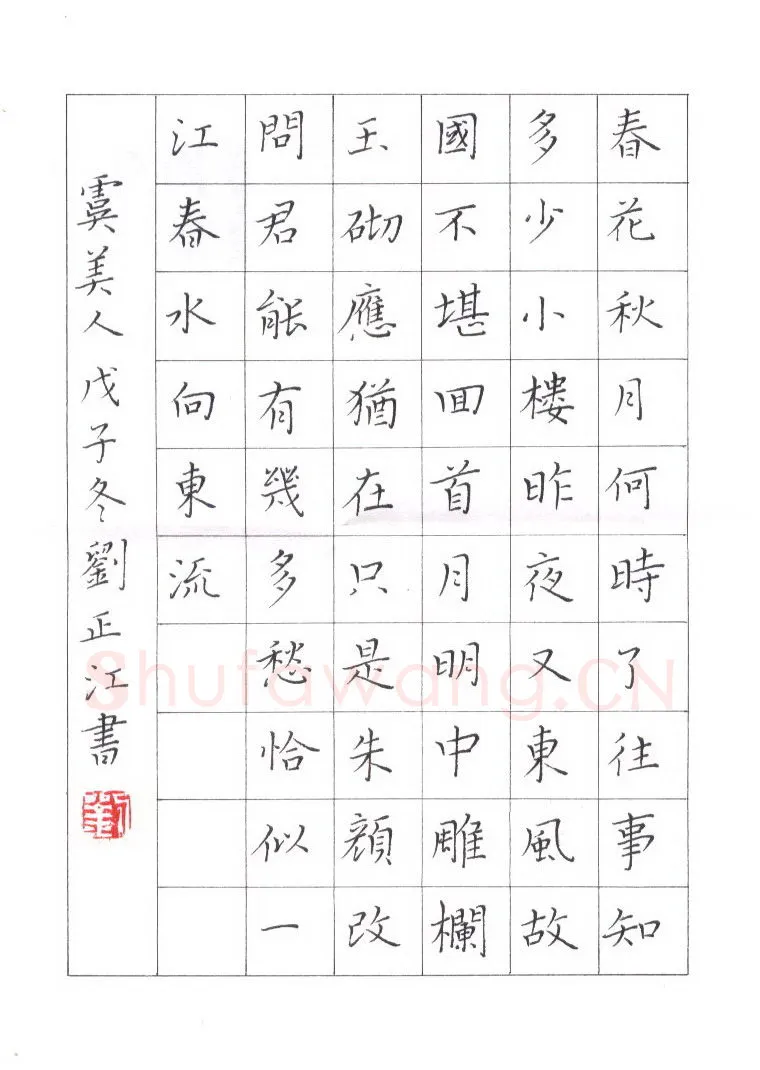 春花秋月何時了往事知
多少小樓昨夜又東風故
國不堪回首月明中雕欄
玉砌應猶在只是朱顔改
問君能有幾多愁恰似一
江春水向東流
虞美人戊子冬劉正江書
劉
Shufawang.CN